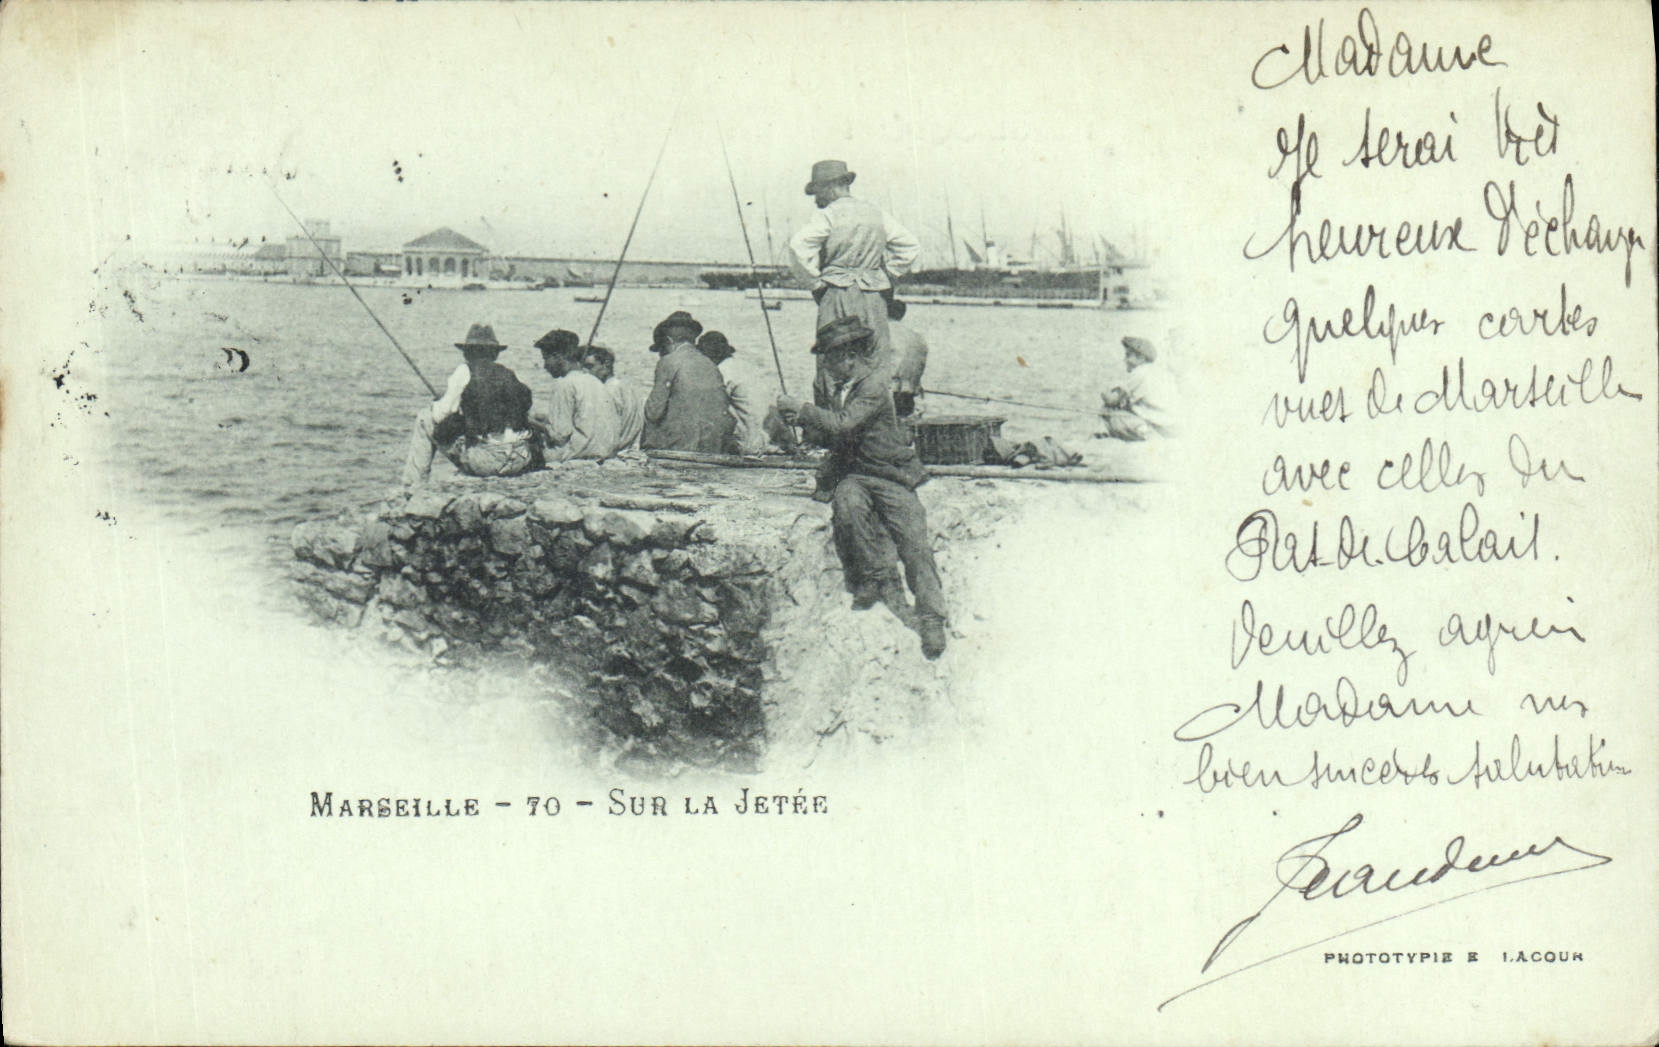 Madame
Je serai très
heureux d'échanger
quelques cartes
vues de Marseille
avec celles du
Pas-de-Calais.
Veuillez agréer
Madame nos
bien sincères salutations
MARSEILLE - 70 - SUR LA JETÉE
PHOTOTYPIE E LACOUR